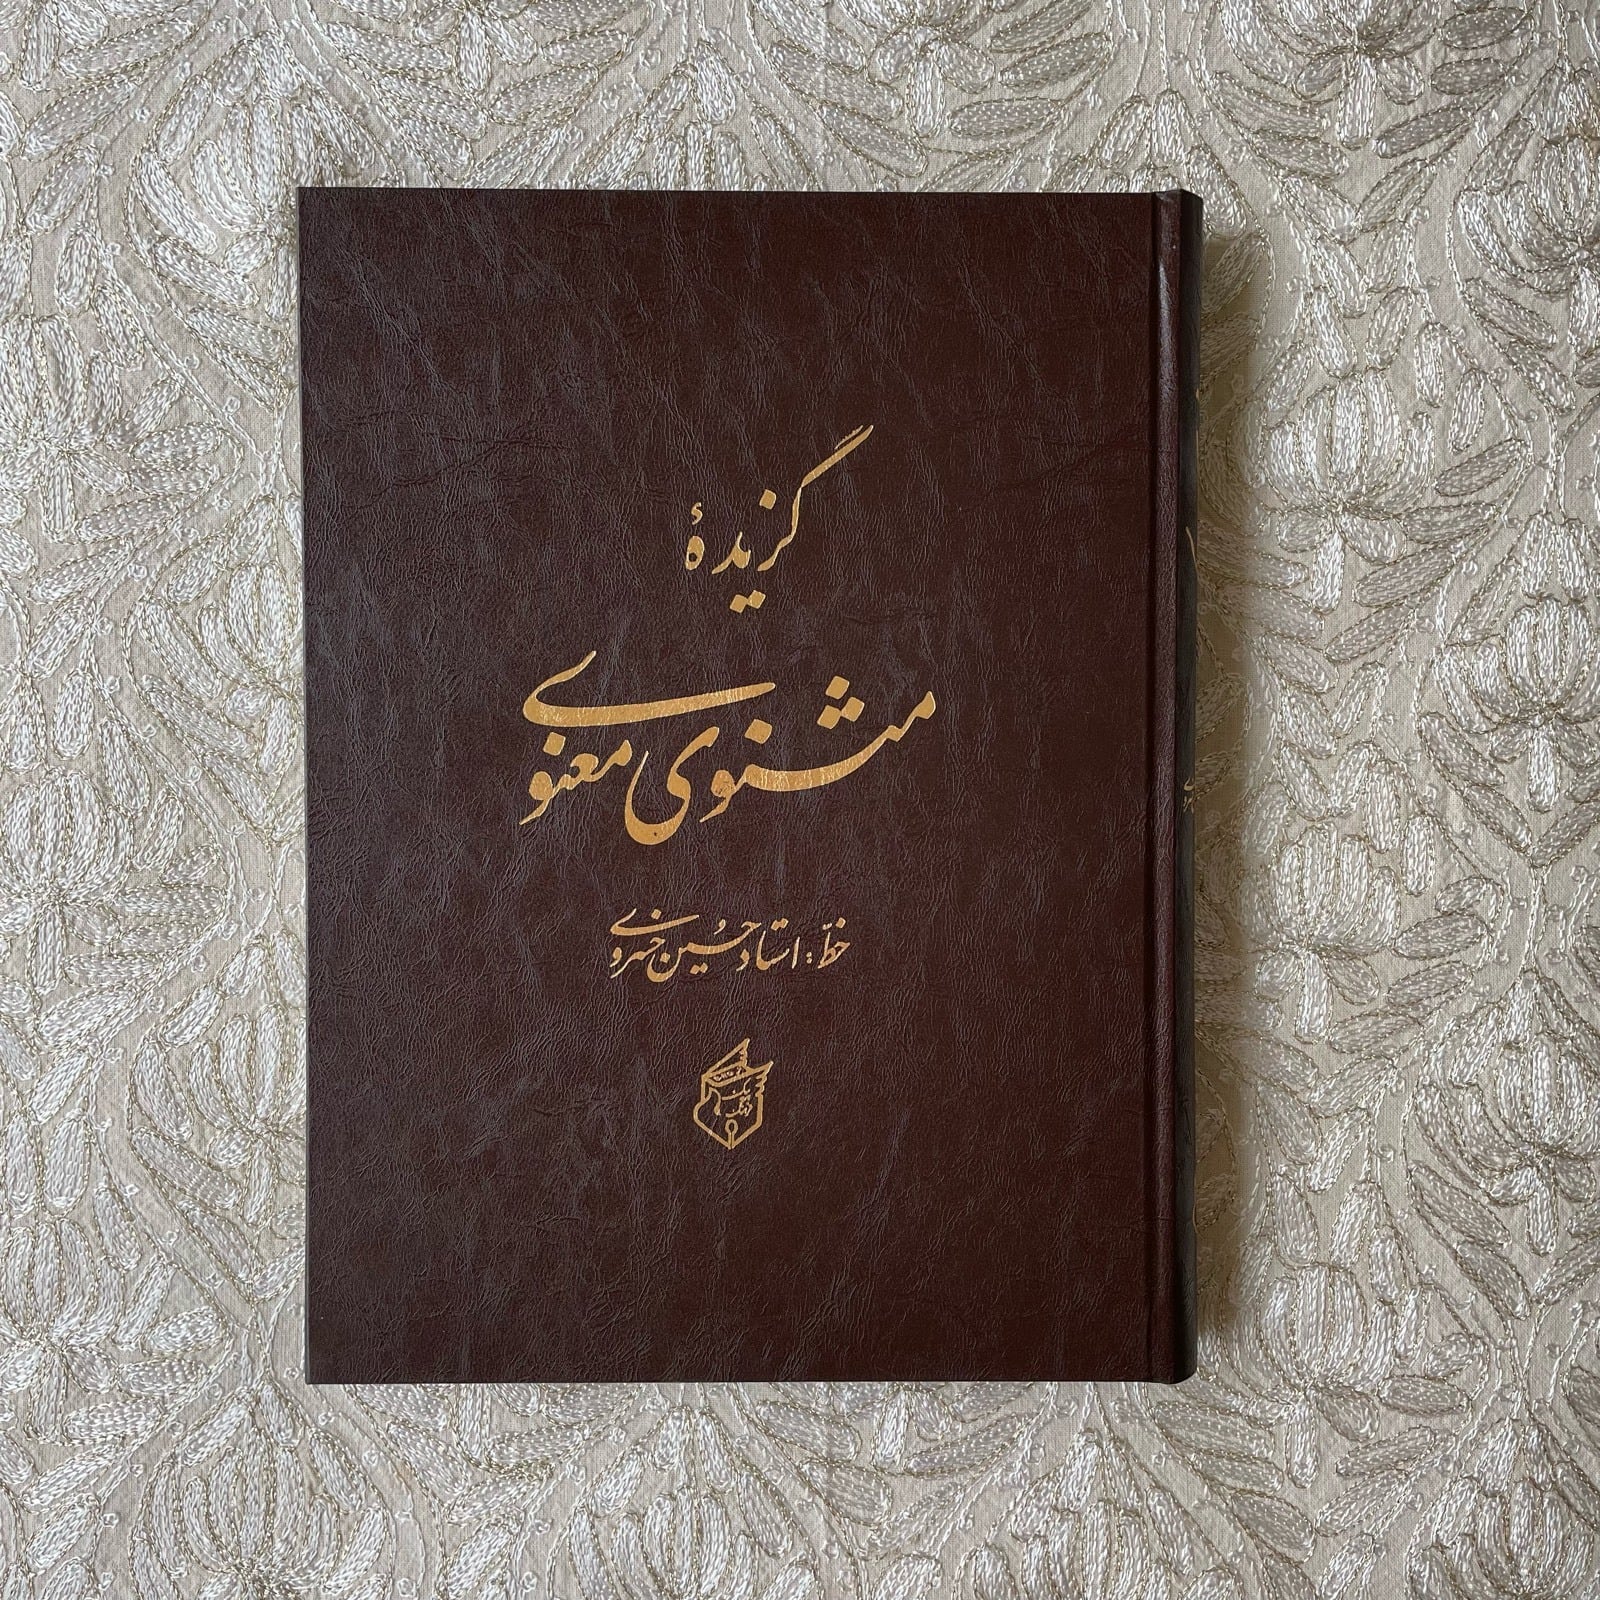 گزیدهٔ
مثنوی معنوی
خطّ: استاد حسین خسروی